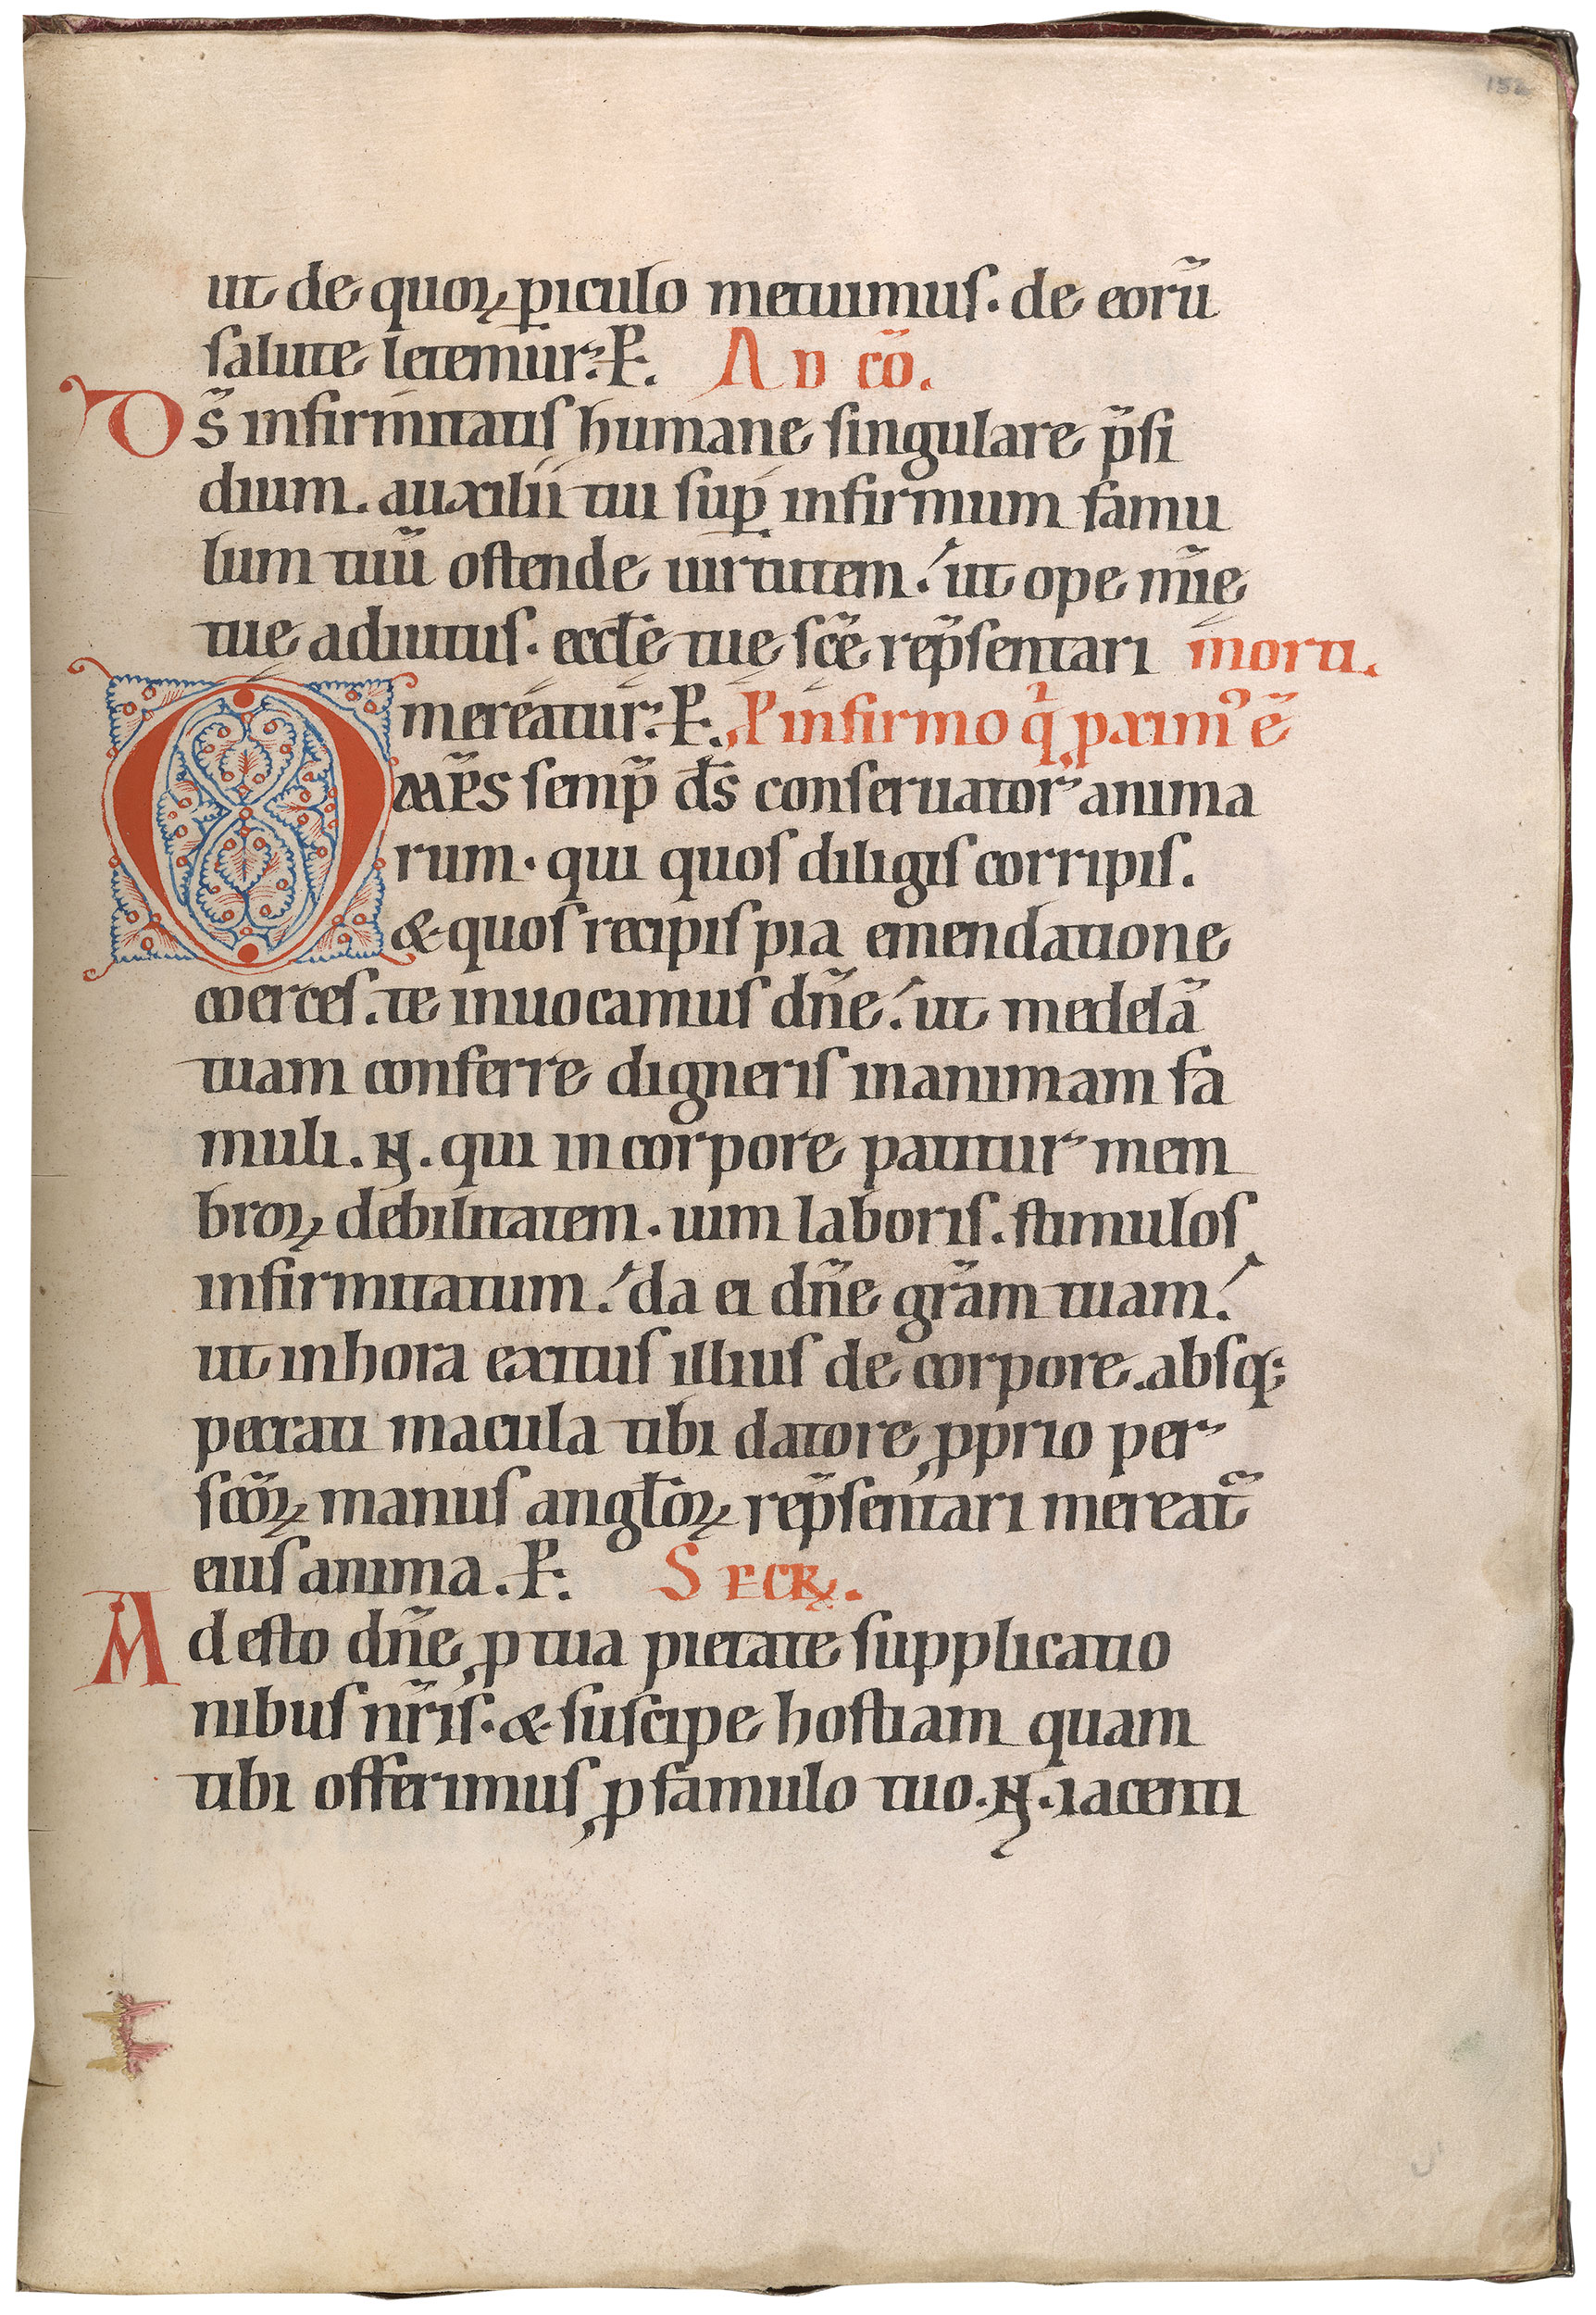 152
ut de quoꝝ ꝑiculo metuimus. de eorū
salute letemur. P̄. AD cō.
Ds̄ infirmitatis humanę singulare p̄si
dium. auxilii tui suꝑ infirmum famu
lum tuū ostende uirtutem. ut ope mīę
tuę adiutus. eccƚę tuę scę̄ rep̄sentari morti.
mereatur. P̄. P infirmo q̇ ꝓximꝰ ē
OMP̄S semp̄ ds̄ conseruator anima
rum. qui quos diligis corripis.
& quos recipis pia emendatione
coerces. te inuocamus dn̄e. ut medelā
tuam conferre digneris in animam fa
muli. N. qui in corpore patitur mem
broꝝ debilitatem. uim laboris. stimulos
infirmitatum. da ei dn̄e grām tuam.
ut in hora exitus illius de corpore. absq;
peccati macula tibi datore ꝓprio per
scōꝝ manus angƚoꝝ rep̄sentari mereat̄
eius anima. P̄. SECR̄.
Adesto dn̄e ꝓ tua pietate supplicatio
nibus nr̄is. & suscipe hostiam quam
tibi offerimus ꝓ famulo tuo. N. iacenti